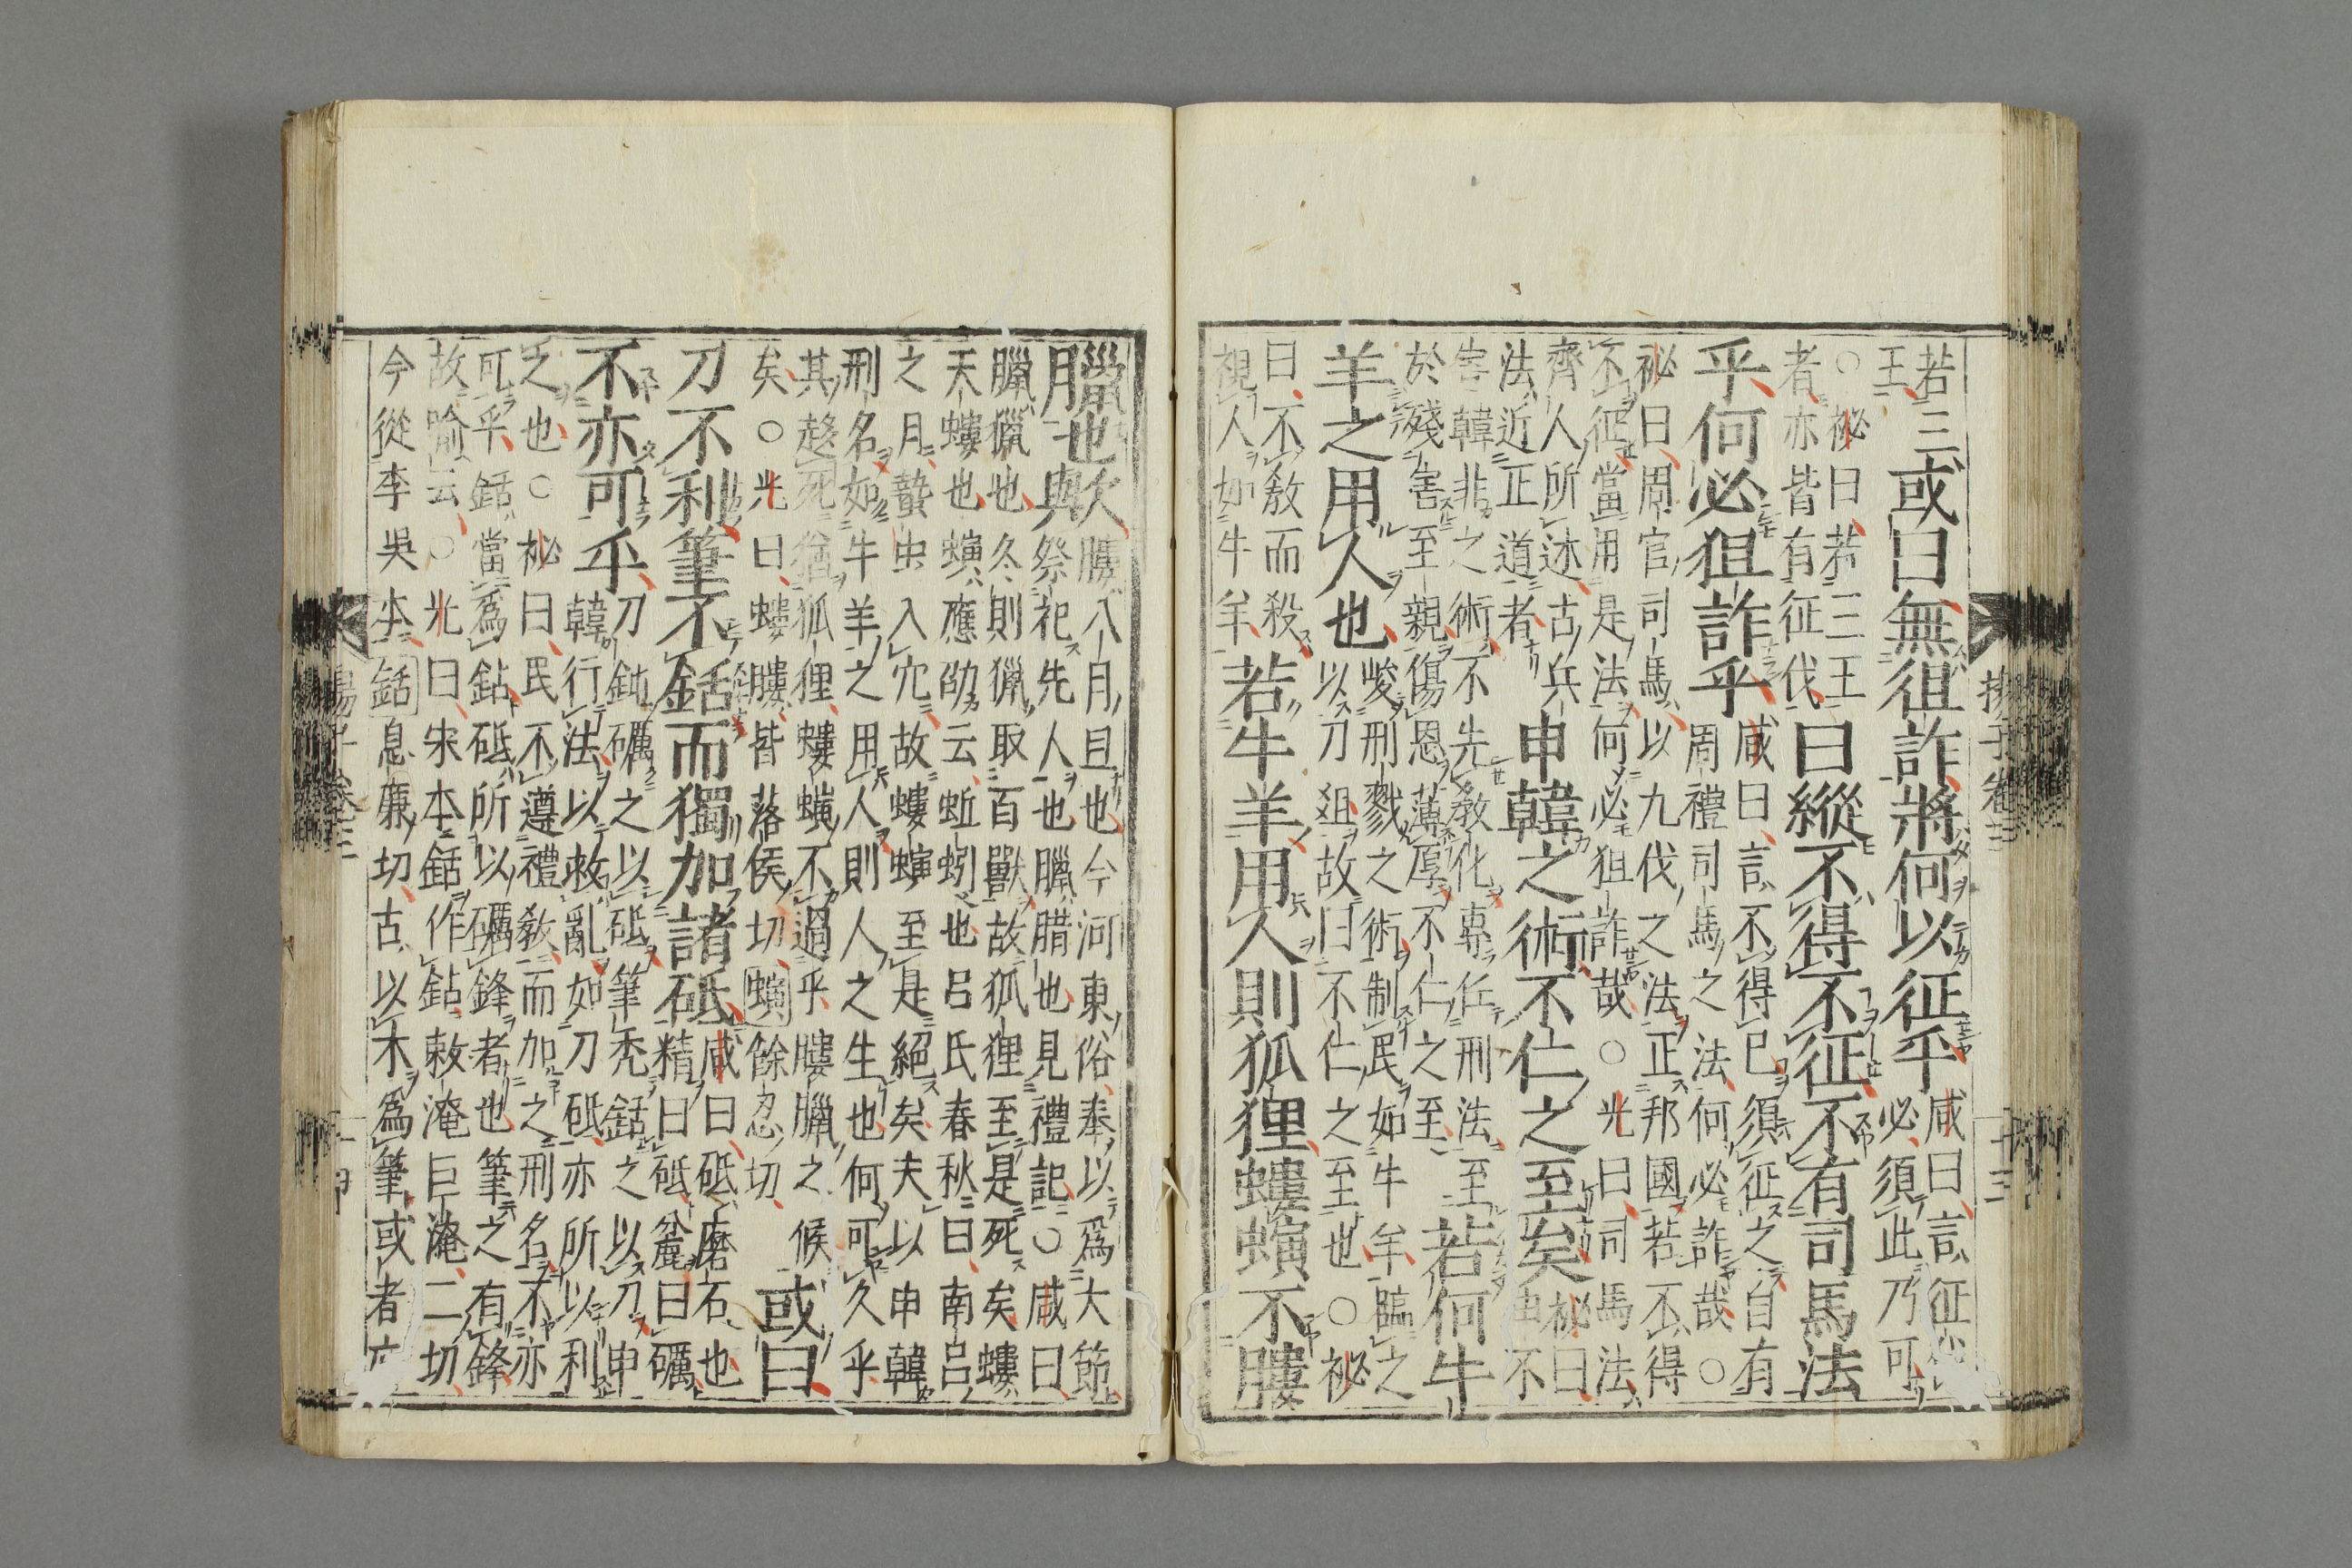 若三或曰無狙詐將何以征乎咸曰言征必
王必須此乃可
○祕曰若三王
者亦皆有征伐曰縱不得不征不有司馬法
乎何必狙詐乎咸曰言不得已須征之自有
周禮司馬之法何必詐哉○
祕曰周官司馬以九伐之法正邦國若不得
不征當用是法何必狙詐哉○光曰司馬法
齊人所述古兵
法近正道者申韓之術不仁之至矣祕曰
由不
害韓非之術不先教化專任刑法至
於殘害至親傷恩薄厚不仁之至若何牛
羊之用人也峻刑戮之術制民如牛羊臨之
以刀俎故曰不仁之至也○祕
曰不教而殺
視人如牛羊若牛羊用人則狐狸螻螾不膢
臘也歟膢八月旦也今河東俗奉以為大節
與祭祀先人也臘腊也見禮記○咸曰
臘獵也冬則獵取百獸故狐狸至是死矣螻
天螻也螾應劭云蚯蚓也呂氏春秋曰南呂
之月蟄虫入穴故螻螾至是絕矣夫以申韓
刑名如牛羊之用人則人之生也何可久乎
其趍死猶狐狸螻螾不過乎膢臘之候
矣○光曰螻膢皆落侯切螾餘忍切或曰
刀不利筆不銛而獨加諸砥咸曰砥磨石也
精曰砥麄曰礪
不亦可乎刀鈍礪之以砥筆秃銛之以刀申
韓行法以救亂如刀砥亦所以利
之也○祕曰民不遵禮教而加之刑名不亦
可乎銛當為鉆砥所以礪鋒者也筆之有鋒
故喻云○光曰宋本銛作鉆敕淹巨淹二切
今從李吳本銛息廉切古以木為筆或者
揚子卷三
十三
揚子卷三
十四